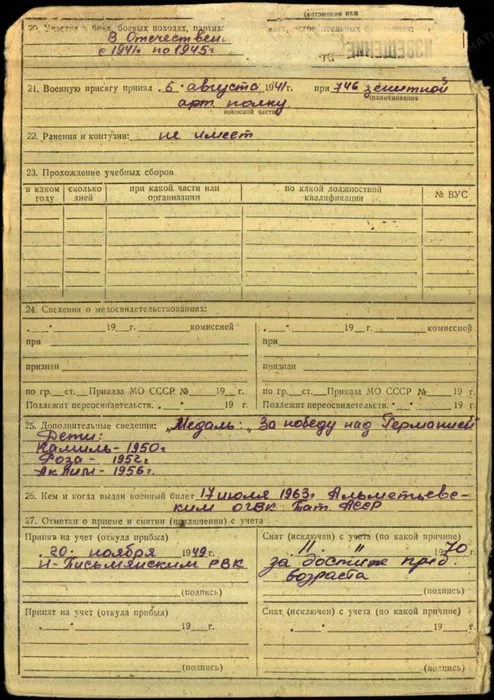 или
20. Участие в боях, боевых походах, партиз
В Отечествен
с 1941г. по 1945г.
ИЗВЕЩЕНИЕ
21. Военную присягу принял „5“ августа 1941 г. при 746 зенитной
арт. полку
наименование
воинской части
22. Ранения и контузии: не имеет
23. Прохождение учебных сборов
в каком году
сколько дней
при какой части или организации
по какой должностной квалификации
№ ВУС
24. Сведения о медосвидетельствованиях:
„ “ 19 г. комиссией
„ “ 19 г. комиссией
при
при
признан
признан
по гр. ст. Приказа МО СССР № 19 г.
по гр. ст. Приказа МО СССР № 19 г.
Подлежит переосвидетельств. „ “ 19 г.
Подлежит переосвидетельств. „ “ 19 г.
25. Дополнительные сведения: Медаль: „За победу над Германией“
Дети:
Камиль - 1950г.
Роза - 1952г.
1956г.
26. Кем и когда выдан военный билет 17 июля 1963г. Альметьевс-
ким ОГВК Тат. АССР
27. Отметки о приеме и снятии (исключении) с учета
Принят на учет (откуда прибыл)
„20“ ноября 1949 г.
Н-Письмянским РВК
(подпись)
Снят (исключен) с учета (по какой причине)
„ “ 1970
за достиж. пред.
возраста
(подпись)
Принят на учет (откуда прибыл)
„ “ 19 г.
(подпись)
Снят (исключен) с учета (по какой причине)
„ “ 19 г.
(подпись)